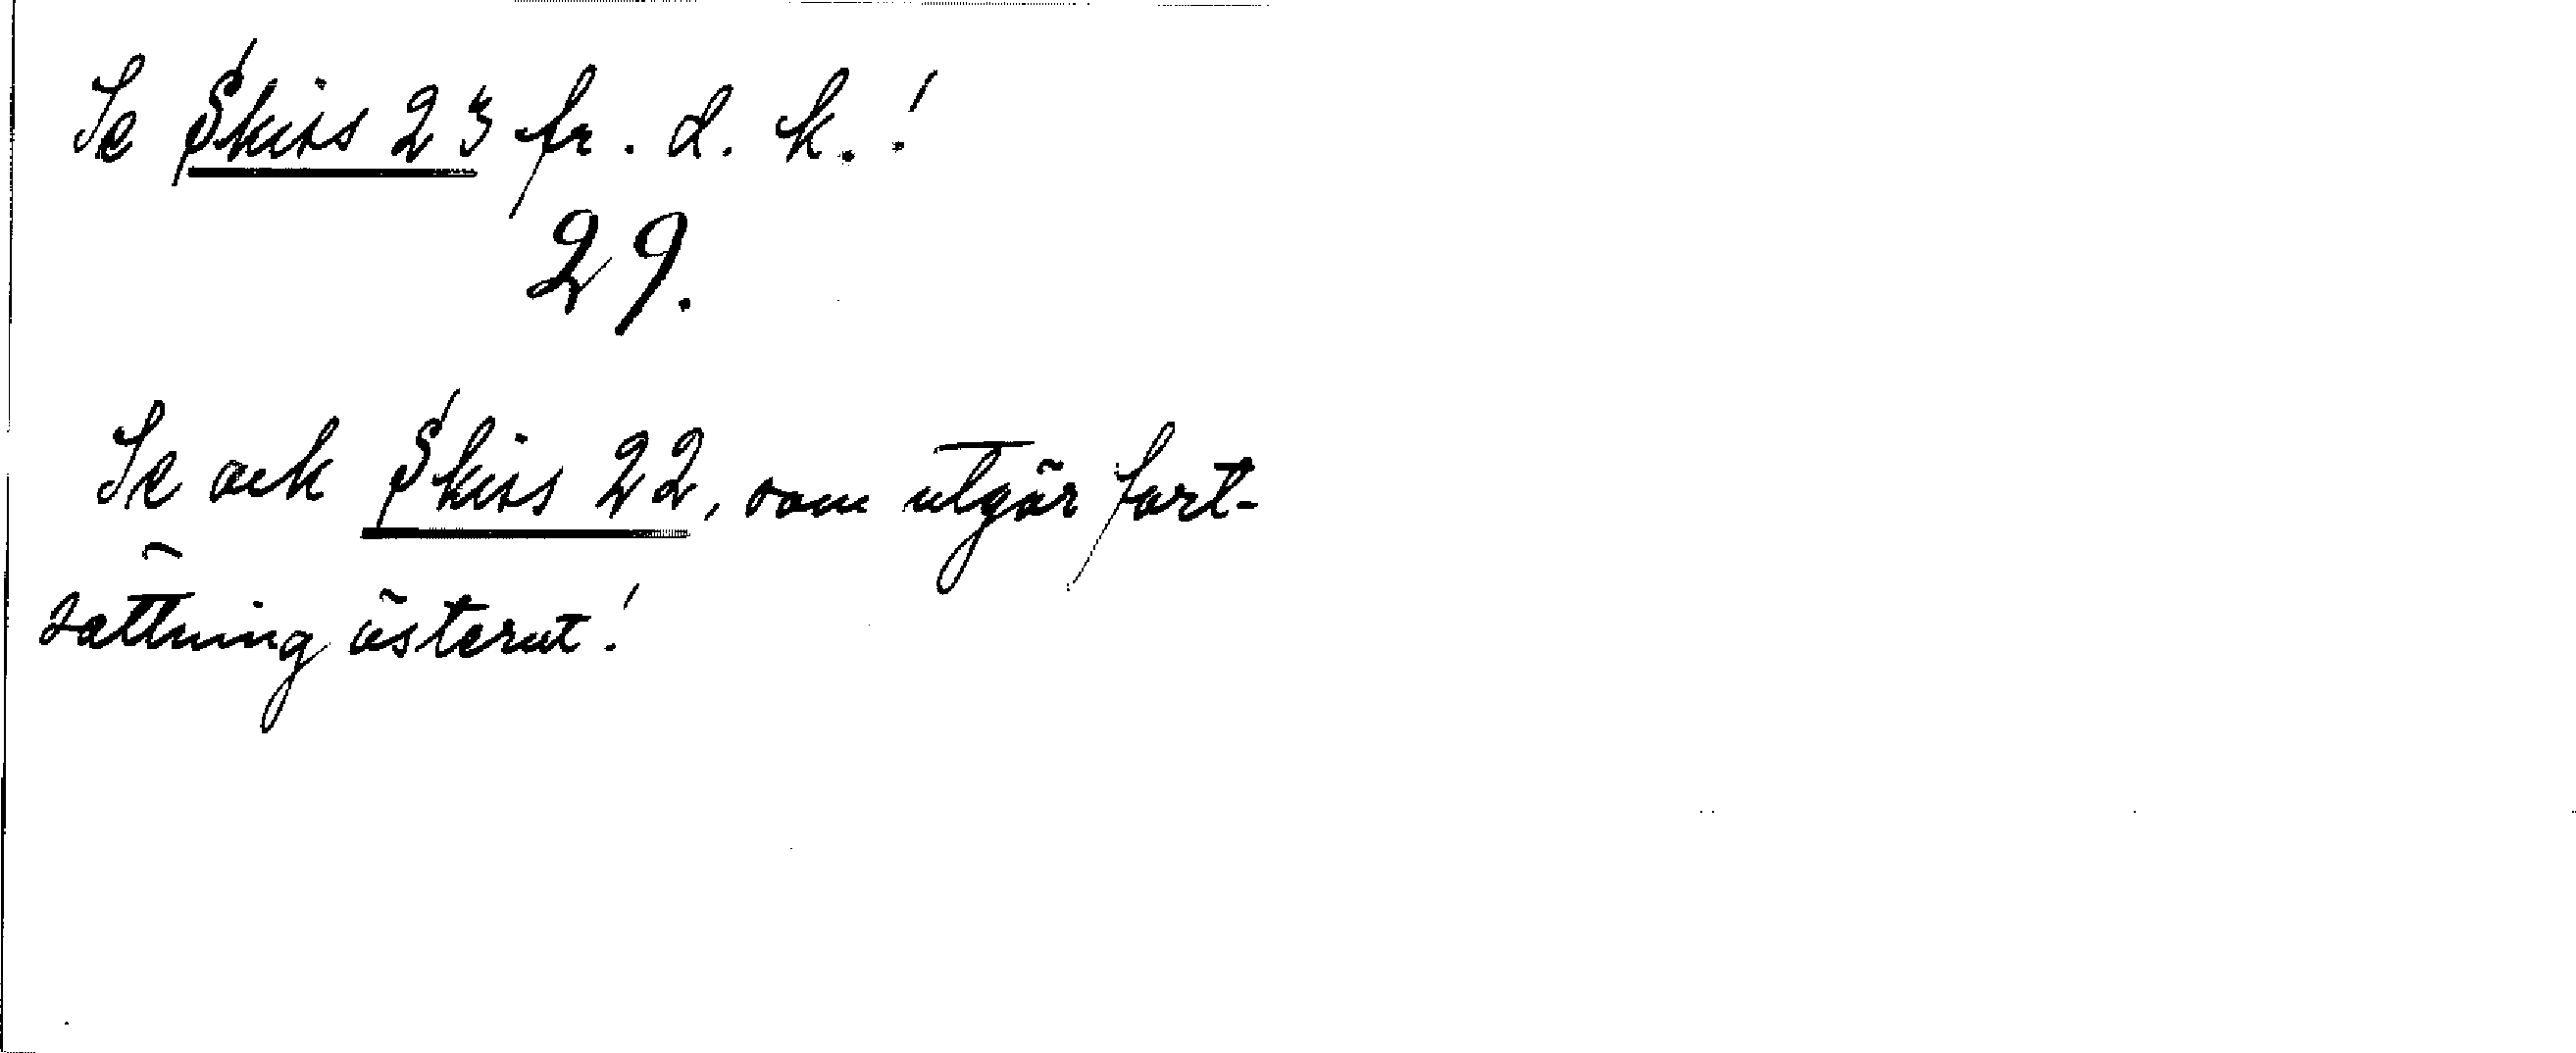 Se Skiss 23 fr. d. k.!
29.
Se ock Skiss 22, som utgör fort-
sättning österut!